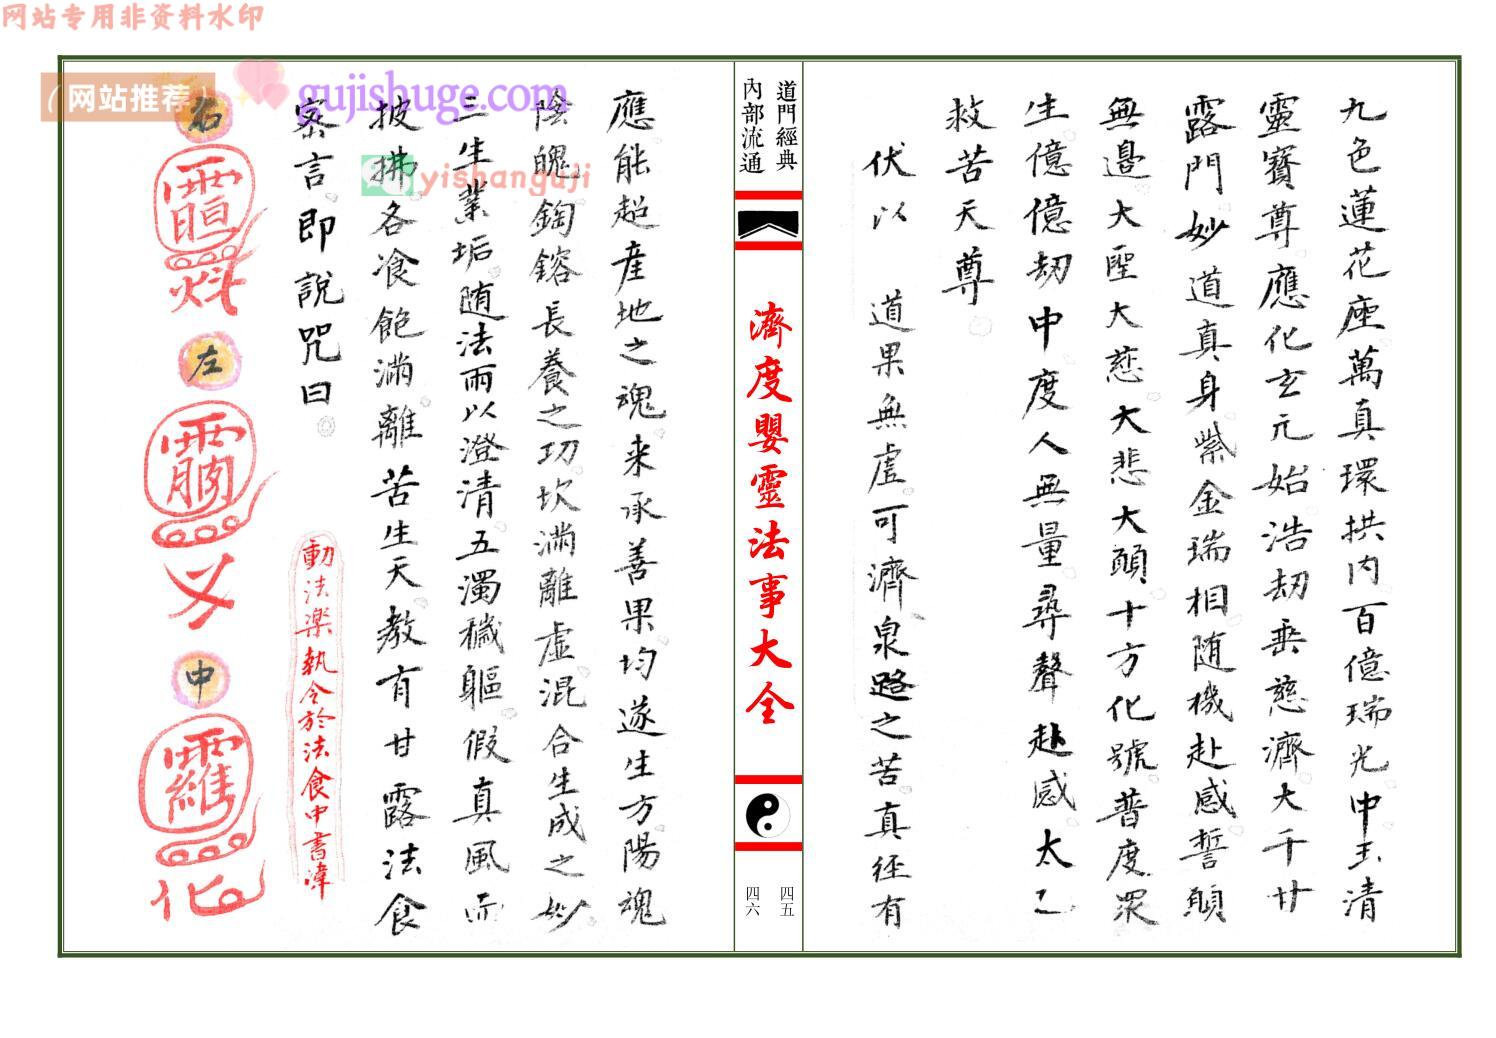 网站专用非资料水印
网站推荐
gujishuge.com
yishanguji
九色蓮花座萬真環拱内百億瑞光中玉清
靈寳尊應化玄元始浩劫垂慈濟大千甘
露門妙道真身紫金瑞相随機赴感誓願
無邉大聖大慈大悲大願十方化號普度眾
生億億劫中度人無量尋聲赴感太乙
救苦天尊
伏以 道果無虚可濟泉路之苦真径有
道門經典
內部流通
濟度嬰靈法事大全
四五
四六
應能超産地之魂来承善果均遂生方陽魂
陰魄鋾鎔長養之功坎满離虚混合生成之妙
三生業垢随法雨以澄清五濁穢軀假真風而
披拂各飡飽满離苦生天教有甘露法食
宻言即說咒曰
動法楽執令於法食中書諱
右
左
中
化